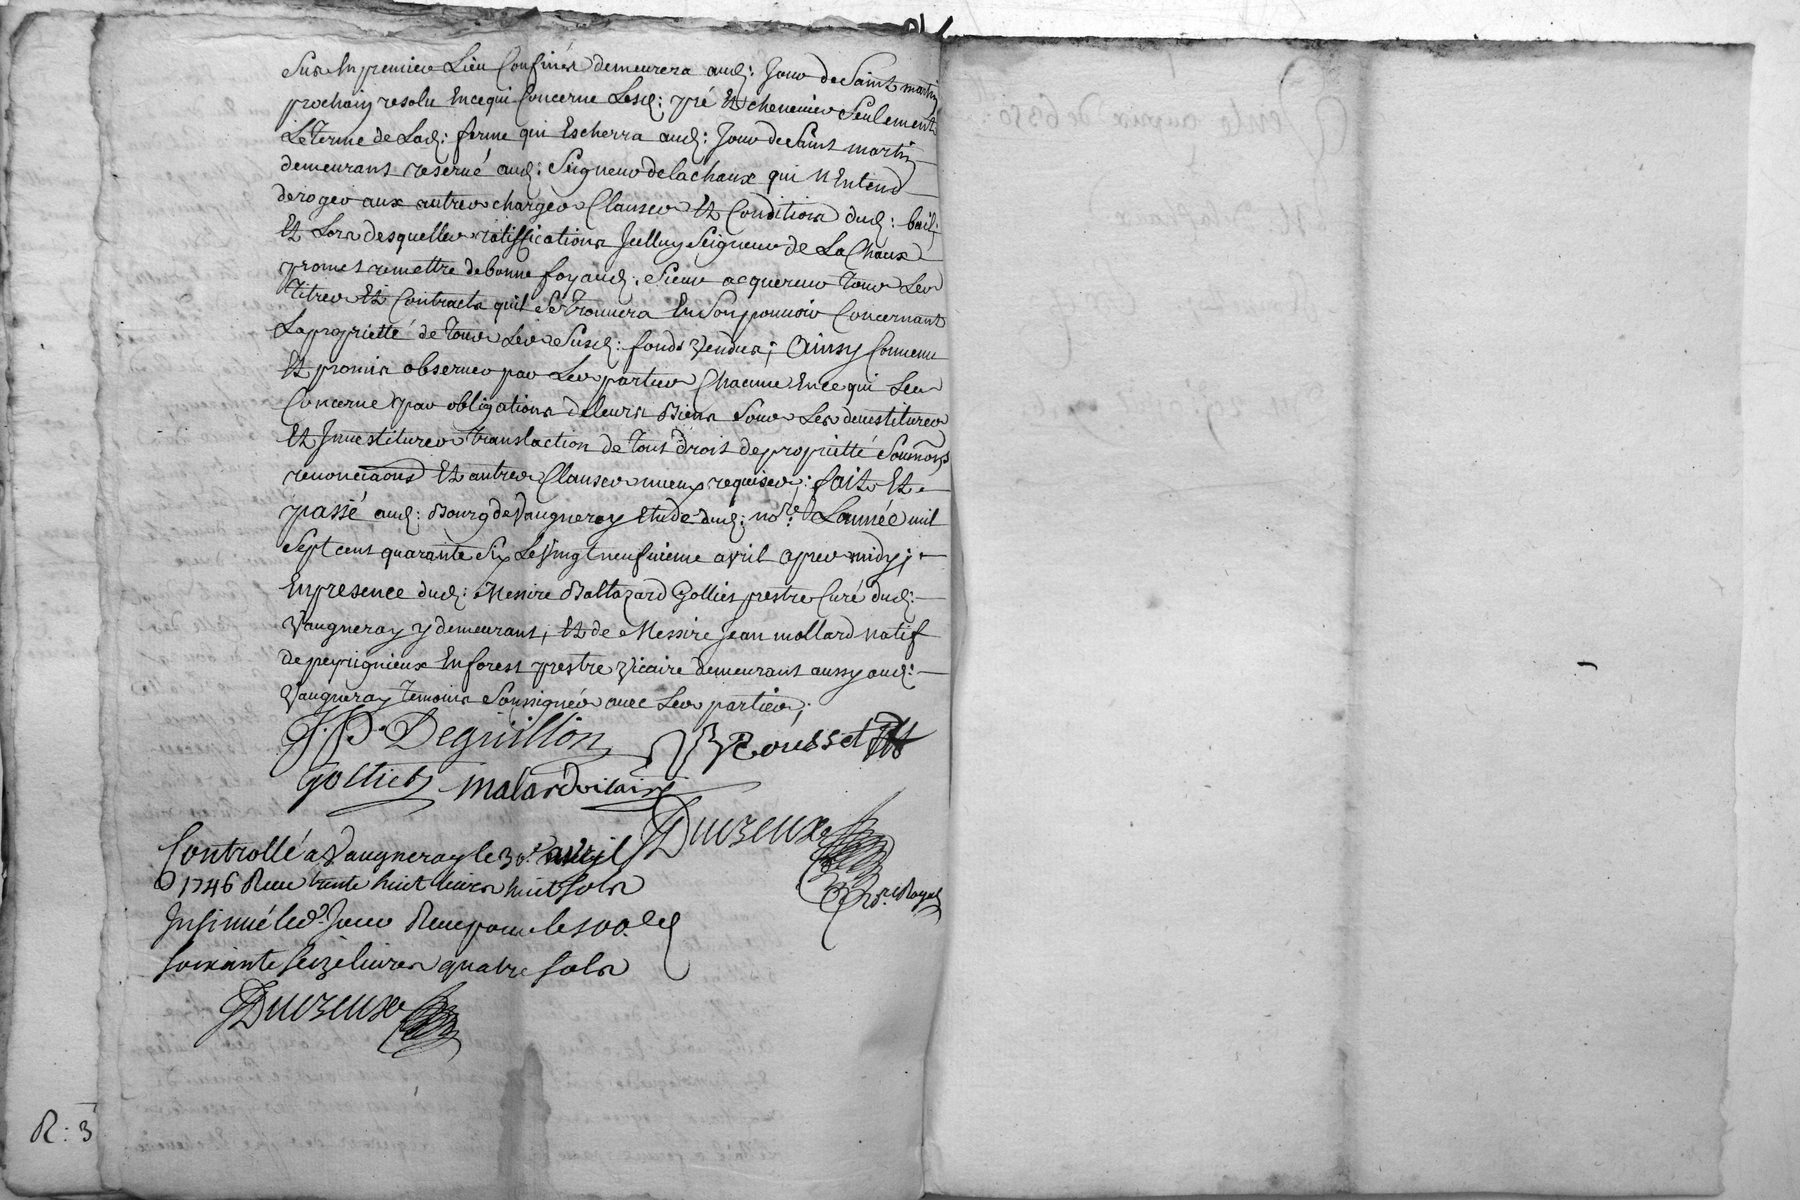 Sus En premier Lieu Confinés demeurera aud: Jour de Saint martin
prochain resolu Encequi Concerne Lesd: pré Et chenevier Seulement
Le Terme de Lad: ferme qui Escherra aud: Jour de Saint martin
demeurant reservé aud: Seigneur delachaux qui N'Entend
deroger aux autres charges Clauses Et Conditions dud: bail;
Et Lors desquelles ratiffications Jcelluy Seigneur de La Chaux
promet remettre debonne foy aud: Sieur acquereur Tous Les
Titres Et Contracts quil Se Trouvera En Son pouvoir Concernant
La proprietté de Tous Les Susd: fonds Vendus; Ainsy Convenu
Et promis observer par Les parties Chacune Ence qui Les
Concerne par obligations deleurs Biens Sous Les devestitures
Et Jnvestitures translaction de Tous droit de proprietté Soumons
renonciaons Et autres Clauses mieux requises; fait Et
passé aud: Bourg de Vaugneray Etude dud: nore: L'année mil
Sept cent quarante Six Le Vingt neufvieme avril apres midy;
En presence dud: Messire Baltazard Golliet prestre Curé dud:
Vaugneray y demeurant, Et de Messire Jean mollard natif
de peyrignieux En forest prestre Vicaire demeurant aussy aud:
Vaugneray Temoins Soussignés avec Les parties;
J. P. Deguillon Rousset
Golliet malard vicaire
Duvreux
nre. Royal
Controllé a Vaugneray le 30e. avril
1746 Receu trente huit livres huit sols
Jnsinué led. Jour Receu pour le 100.e d
soixante seize livres quatre sols
Duvreux
R: 3